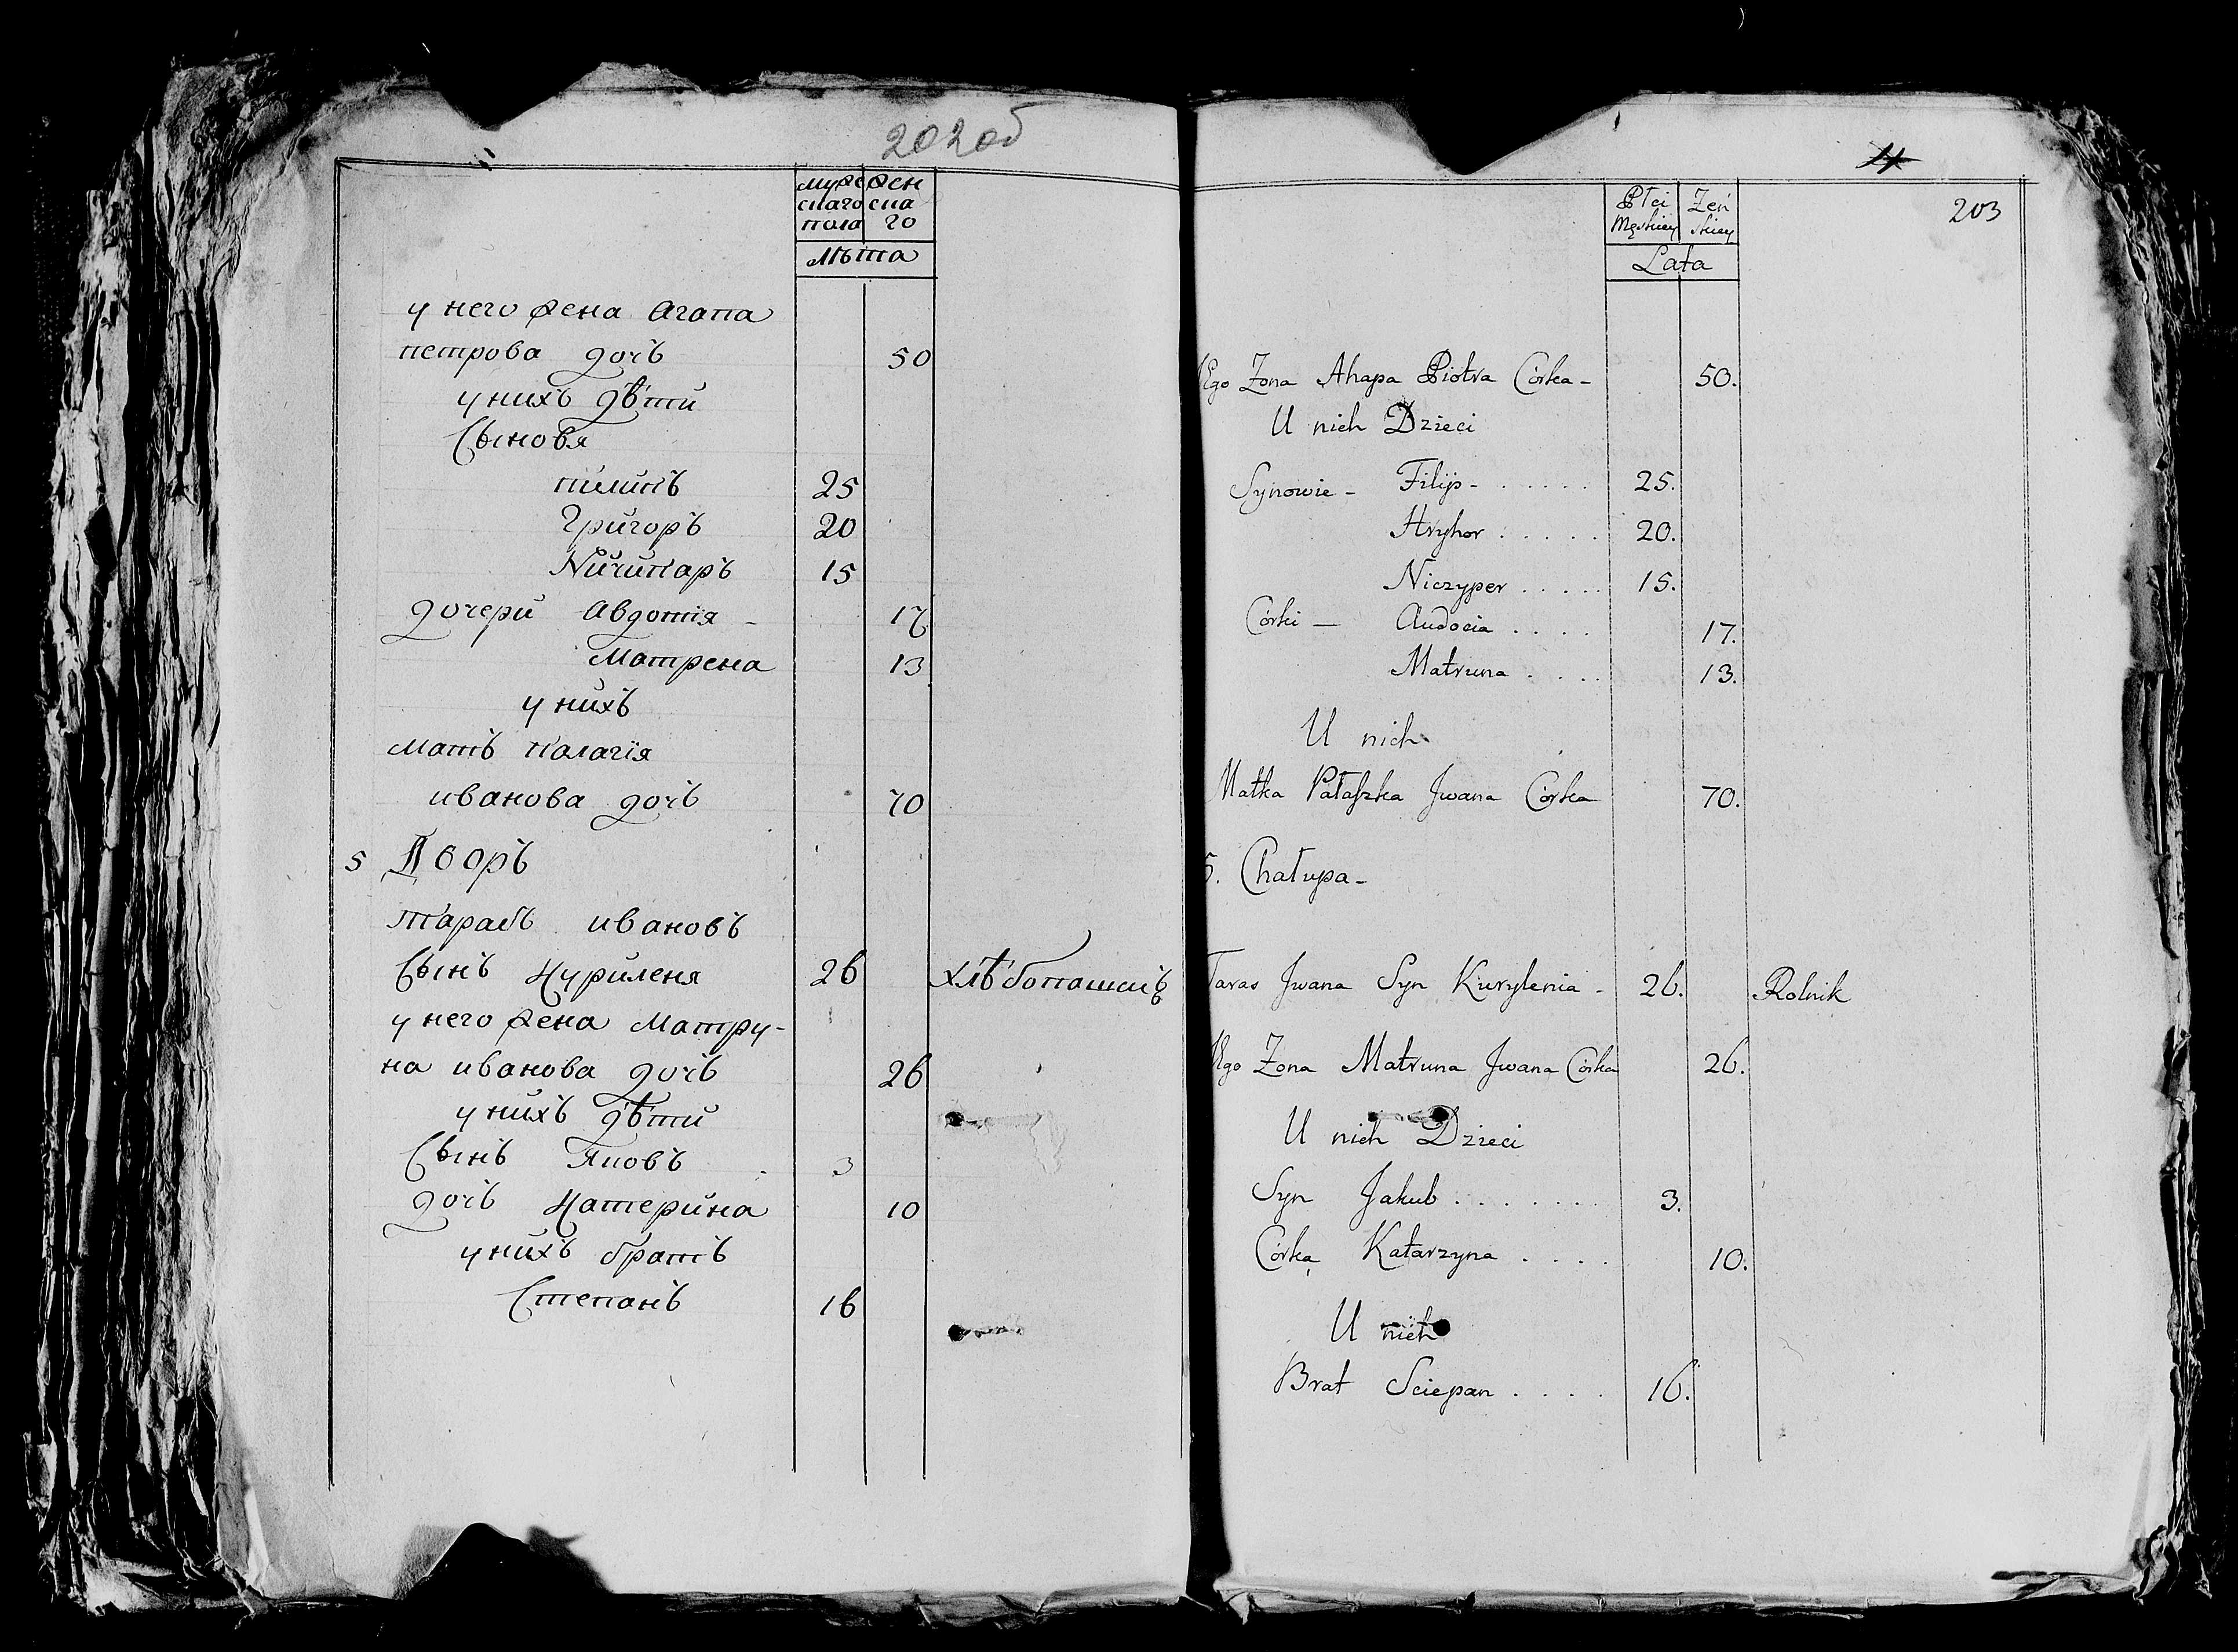 202об
муже
скаго
пола
жен
ска
го
Лѣта
у него жена Агапа
петрова дочь 50
у нихъ дѣти
Сыновя
пилипъ 25
Григоръ 20
Ничипаръ 15
дочери Авдотія - 17
Матрена 13
у нихъ
мать палагія
иванова дочь 70
5 Дворъ
тарасъ ивановъ
Сынъ Куриленя 26 хлѣбопашецъ
у него жена Матру-
на иванова дочь 26
у нихъ дѣти
Сынъ Яковъ 3
дочь Катерина 10
у нихъ братъ
Степанъ 16
203
Płci
Męskiey
Żeń
skiey
Lata
Jego Żona Ahapa Piotra Córka - 50.
U nich Dzieci
Synowie - Filip - . . . . . 25.
Hryhor . . . . . 20.
Niczyper . . . . . 15.
Córki — Audocia . . . . 17.
Matruna . . . . 13.
U nich
Matka Pałaszka Jwana Córka 70.
5. Chałupa -
Taras Jwana Syn Kurylenia - 26. Rolnik
Jego Żona Matruna Jwana Córka 26.
U nich Dzieci
Syn Jakub . . . . . . . 3.
Córka Katarzyna . . . . 10.
U nich
Brat Sciepan . . . . 16.